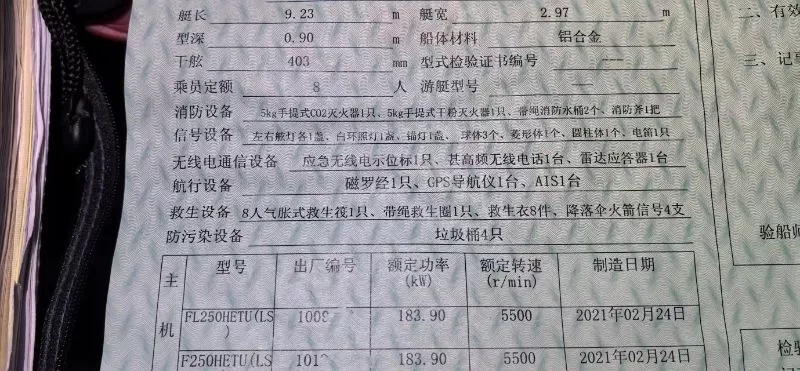 艇长 9.23 m 艇宽 2.97 m
型深 0.90 m 船体材料 铝合金
干舷 403 mm 型式检验证书编号 ——
乘员定额 8 人 游艇型号 ——
消防设备 5kg手提式CO2灭火器1只、5kg手提式干粉灭火器1只、带绳消防水桶2个、消防斧1把
信号设备 左右舷灯各1盏、白环照灯1盏、锚灯1盏、球体3个、菱形体1个、圆柱体1个、电笛1只
无线电通信设备 应急无线电示位标1只、甚高频无线电话1台、雷达应答器1台
航行设备 磁罗经1只、GPS导航仪1台、AIS1台
救生设备 8人气胀式救生筏1只、带绳救生圈1只、救生衣8件、降落伞火箭信号4支
防污染设备 垃圾桶4只
主机
型号 出厂编号 额定功率(kW) 额定转速(r/min) 制造日期
FL250HETU(LS) 1009 183.90 5500 2021年02月24日
F250HETU(LS 101 183.90 5500 2021年02月24日
二、有效
三、记事
验船师
检验